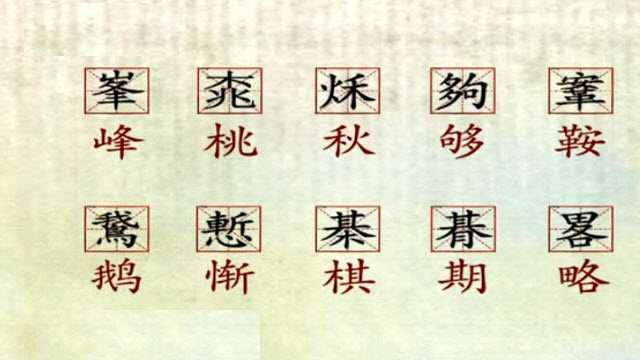 峯 秌 夠 鞌
峰 桃 秋 够 鞍
鵞 慙 棊 朞 畧
鹅 惭 棋 期 略